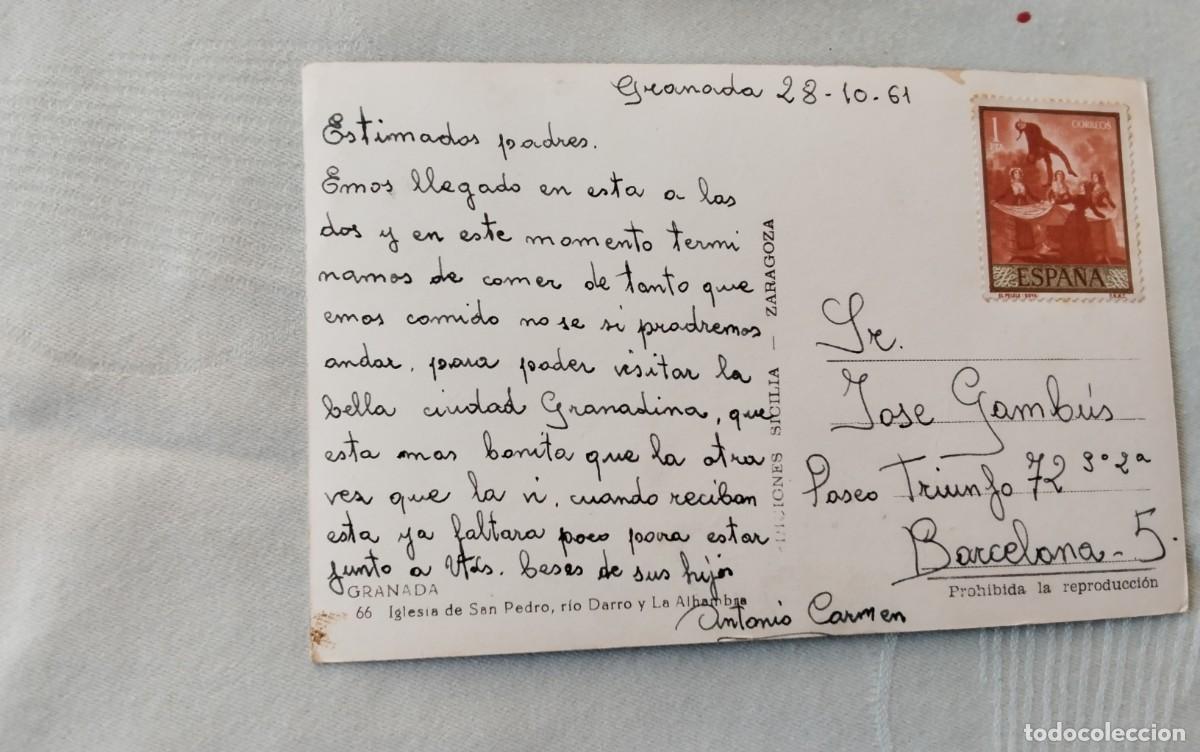 Granada 28-10-61
Estimados padres.
Emos llegado en esta a las
dos y en este momento termi
namos de comer de tanto que
emos comido no se si pradremos
andar, para poder visitar la
bella ciudad Granadina, que
esta mas bonita que la otra
vez que la vi, cuando reciban
esta ya faltara poco para estar
junto a Vtds. Beses de sus hijos
Antonio Carmen
GRANADA
66 Iglesia de San Pedro, río Darro y La Alhambra
EDICIONES SICILIA — ZARAGOZA
1 PTA
CORREOS
ESPAÑA
EL PELELE - GOYA
F.N.M.T.
Sr.
Jose Gambús
Paseo Triunfo 72 3º 2ª
Barcelona - 5.
Prohibida la reproducción
todocoleccion